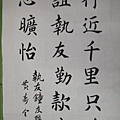 行近千里只
執友勤款
心曠怡
執友鍾友
黃壽全